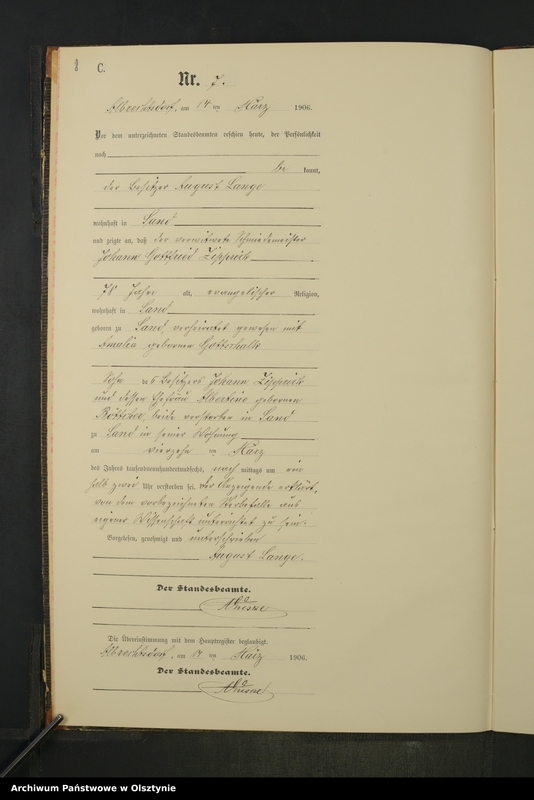 C.
Nr. 7.
Albrechtsdorf, am 14 ten März 1906.
Vor dem unterzeichneten Standesbeamten erschien heute, der Persönlichkeit
nach
be kannt,
der Besitzer August Lange
wohnhaft in Sand
und zeigte an, daß der verwitwete Schmiedemeister
Johann Gottfried
78 Jahre alt, evangelischer Religion,
wohnhaft in Sand
geboren zu Sand, verheiratet gewesen mit
Amalia geborenen Gottschalk
Sohn des Besitzers Johann
und dessen Ehefrau Albertine geborenen
Böttcher, beide verstorben in Sand
zu Sand in seiner Wohnung
am vierzehn ten März
des Jahres tausendneunhundertundsechs, nach mittags um ein
halb zwei Uhr verstorben sei. Der Anzeigende erklärt,
von dem vorbezeichneten Sterbefalle aus
eigener Wissenschaft unterrichtet zu sein.
Vorgelesen, genehmigt und unterschrieben
August Lange.
Der Standesbeamte.
Die Übereinstimmung mit dem Hauptregister beglaubigt.
Albrechtsdorf, am 14 ten März 1906.
Der Standesbeamte.
Archiwum Państwowe w Olsztynie